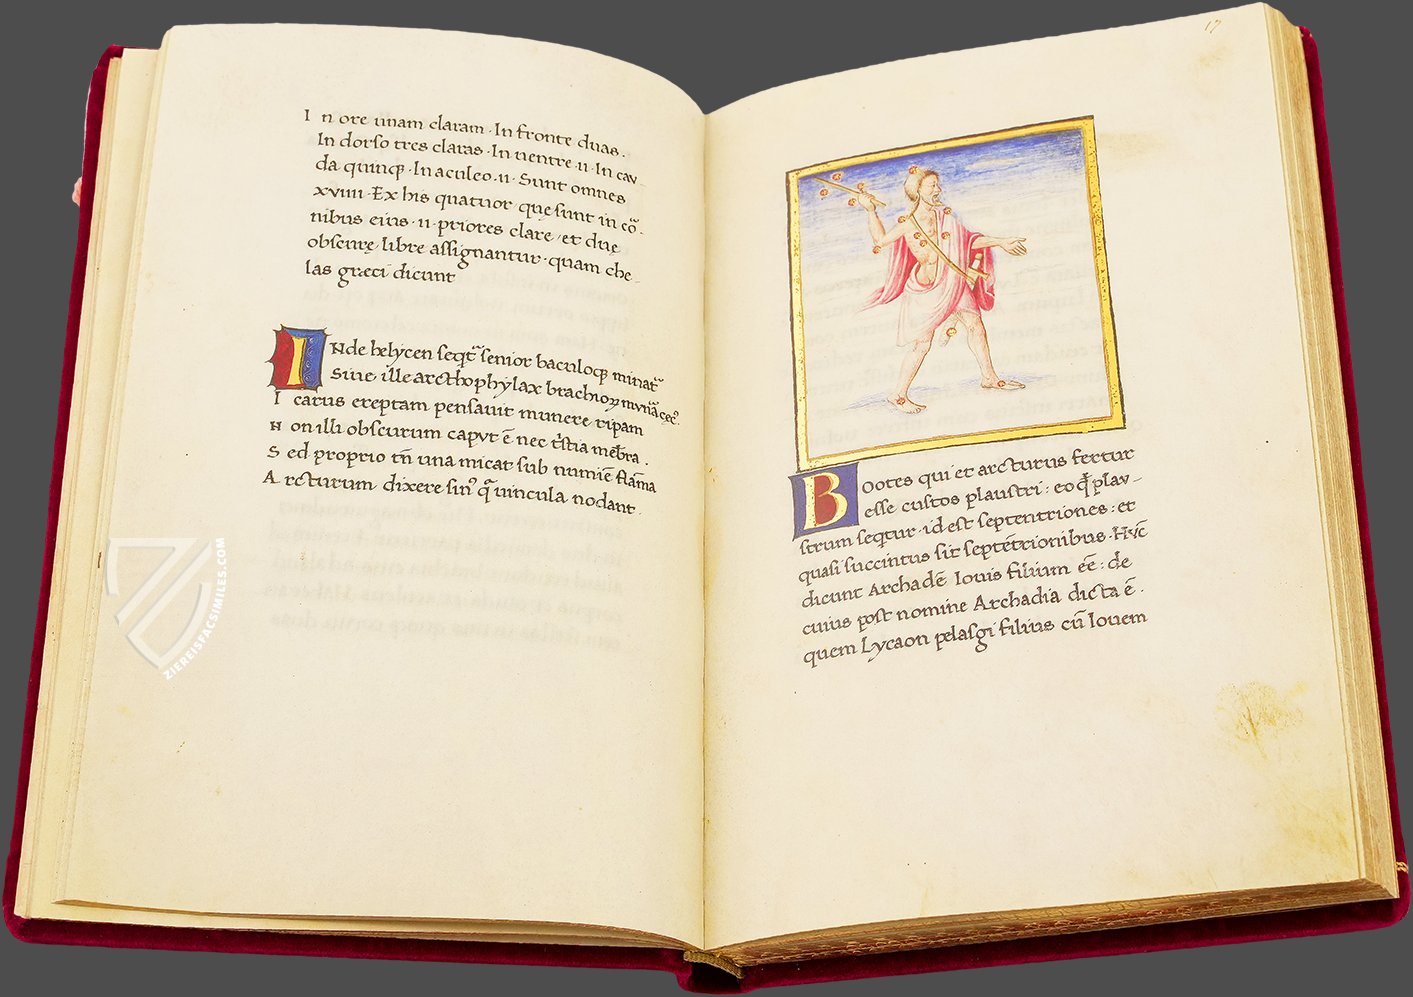 I n ore unam claram · In fronte duas ·
In dorso tres claras · In uentre · ii · In cau
da quinqꝫ · In aculeo · ii · Sunt omnes
xviiii · Ex his quatuor quę sunt in cō ·
nibus eius · ii · priores clare · et duę
obscurę · libre assignantur · quam che
las greci dicunt
INde helycen seqt̄ senior baculoqꝫ minat̄
Siue ille arcthophylax
I carus ereptam pensauit munere ripam
N on illi obscurum capvt ē nec tr̄stia mēbra ·
S ed proprio tn̄ una micat sub numiē flāma
A rcturum dixere sin⁹ q̄ uincula nodant ·
17
BOotes qui et arcturus fertur
esse custos plaustri : eo qd̄ plav-
strum seqtur · id est septentriones : et
quasi succintus sit septētrionibus · Hvc
dicunt Archadē Iouis filium eē : de
cuius post nomine Archadia dicta ē ·
quem Lycaon pelasgi filius cū Iouem
ZIEREISFACSIMILES.COM